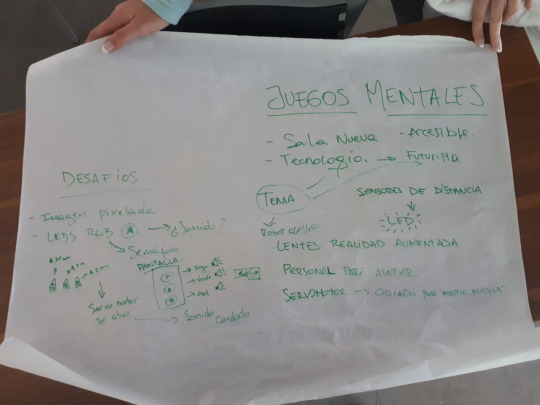 JUEGOS MENTALES
- Sala Nueva - Accesible
- Tecnología. → Futurista
TEMA
SENSORES DE DISTANCIA
LED
LENTES REALIDAD AUMENTADA
PERSONAL PARA
SERVOMOTOR → ODIADO POR
DESAFÍOS
- Imagen pixelada
- LEDS RGB → ¿Sonido?
→ Semáforo
PANTALLA
Servo motor → Sonido
se abre